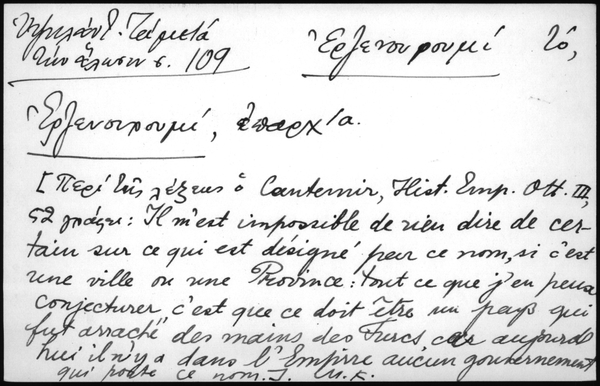 τὴν ἅλωσιν σ. 109
Ἐρζενουρουμί τό,
Ἐρζενουρουμί, ἐπαρχία.
[Περὶ τῆς λέξεως ὁ Cantemir, Hist. Emp. Ott. III,
52 γράφει: Il m'est impossible de rien dire de cer-
tain sur ce qui est désigné par ce nom, si c'est
une ville ou une Province: tout ce que j'en peux
conjecturer, c'est que ce doit être un pays qui
fut arraché des mains des Turcs car aujourd
hui il n'y a dans l'Empire aucun gouvernement
qui porte ce nom.].